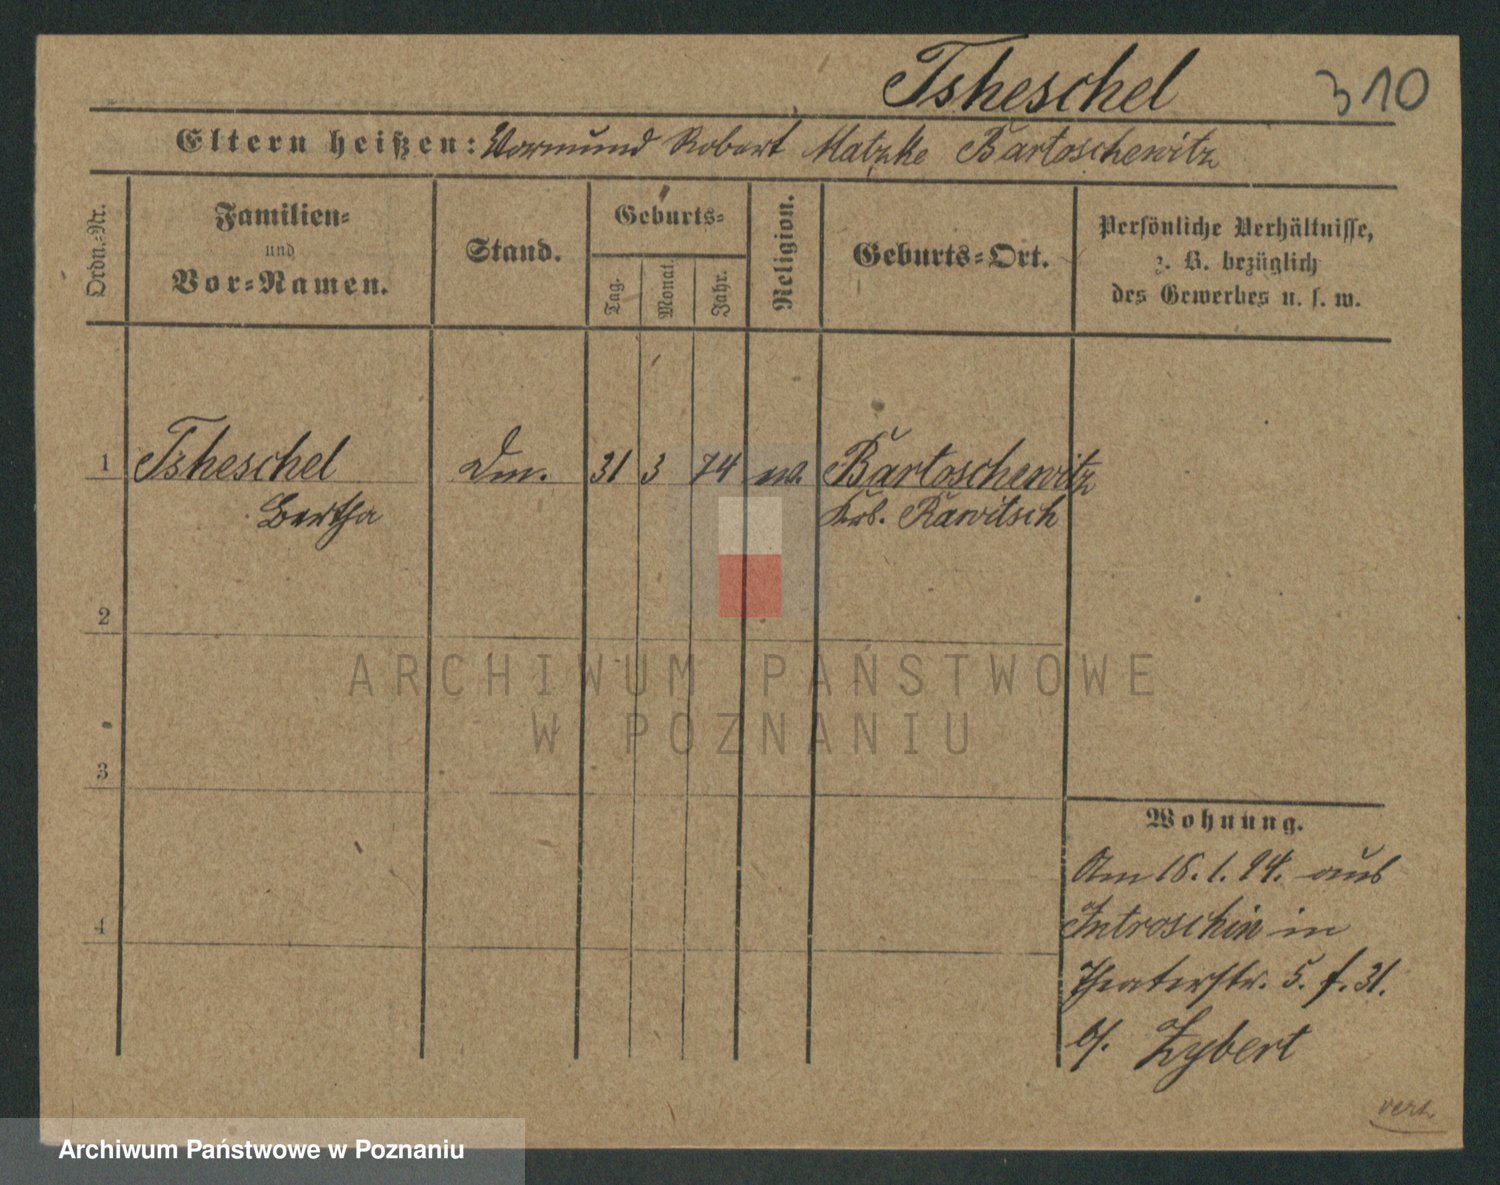 Tsheschel 310
Eltern heißen: Vormund Robert Matzke Bartoschewitz
Ordn.-Nr.
Familien-
und
Vor-Namen.
Stand.
Geburts-
Tag.
Monat.
Jahr.
Religion.
Geburts-Ort.
Persönliche Verhältnisse,
z. B. bezüglich
des Gewerbes u. s. w.
1 Tsheschel 31 3 74 Bartoschewitz
Bertha Krb. Rawitsch
2
3
4
Wohnung.
Am 18. 1. 94. aus
Jutroschin in
Theaterstr. 5. f. 31.
b/. Zybert
verz
ARCHIWUM PAŃSTWOWE
W POZNANIU
Archiwum Państwowe w Poznaniu